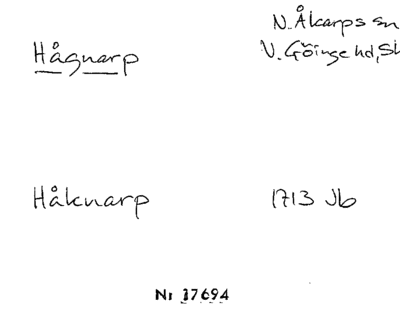 N. Åkarps sn
Hågnarp
V. Göinge hd, Sk
Håknarp 1713 Jb
Nr 17694